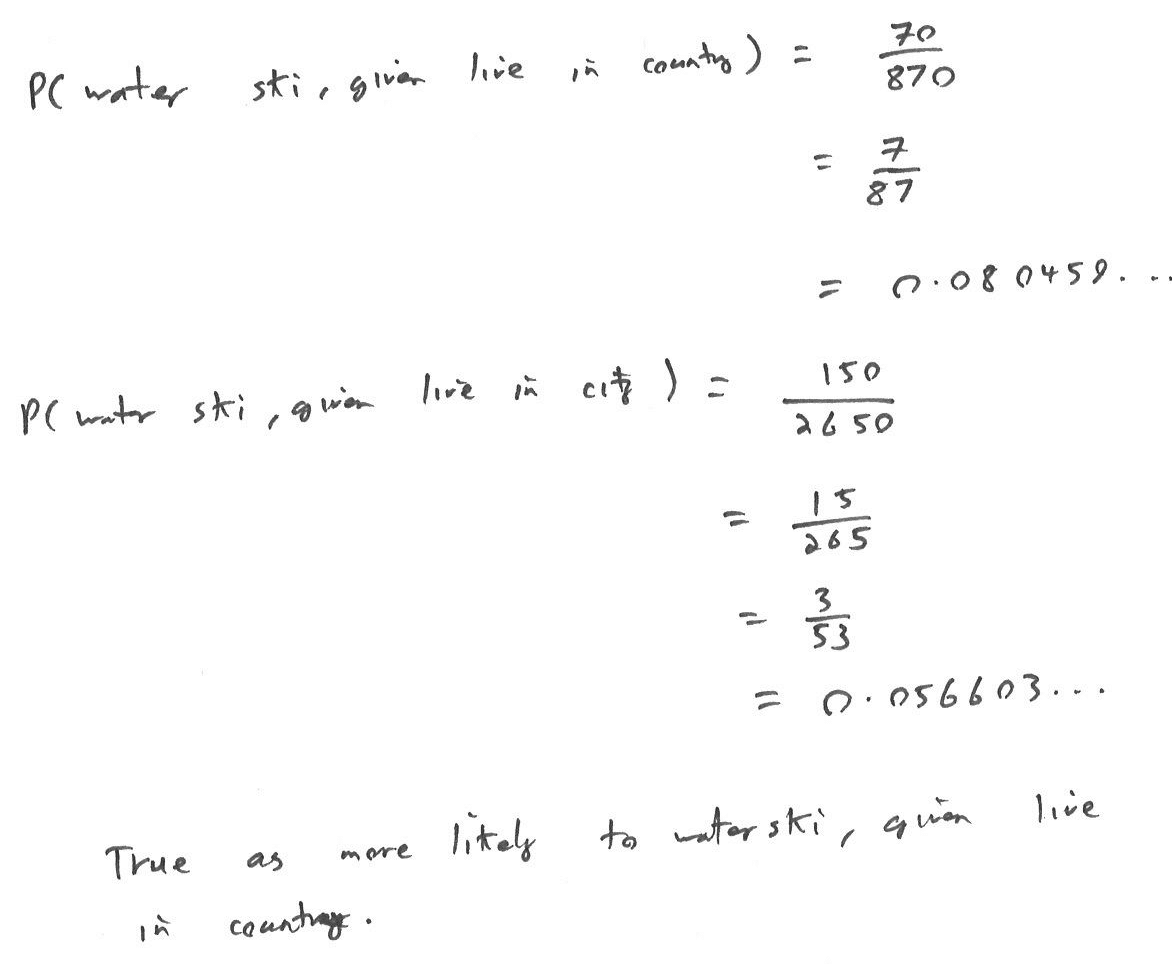 P( water ski, given live in country) = 70/870
= 7/87
= 0.080459...
P( water ski, given live in city ) = 150/2650
= 15/265
= 3/53
= 0.056603...
True as more likely to water ski, given live
in country.